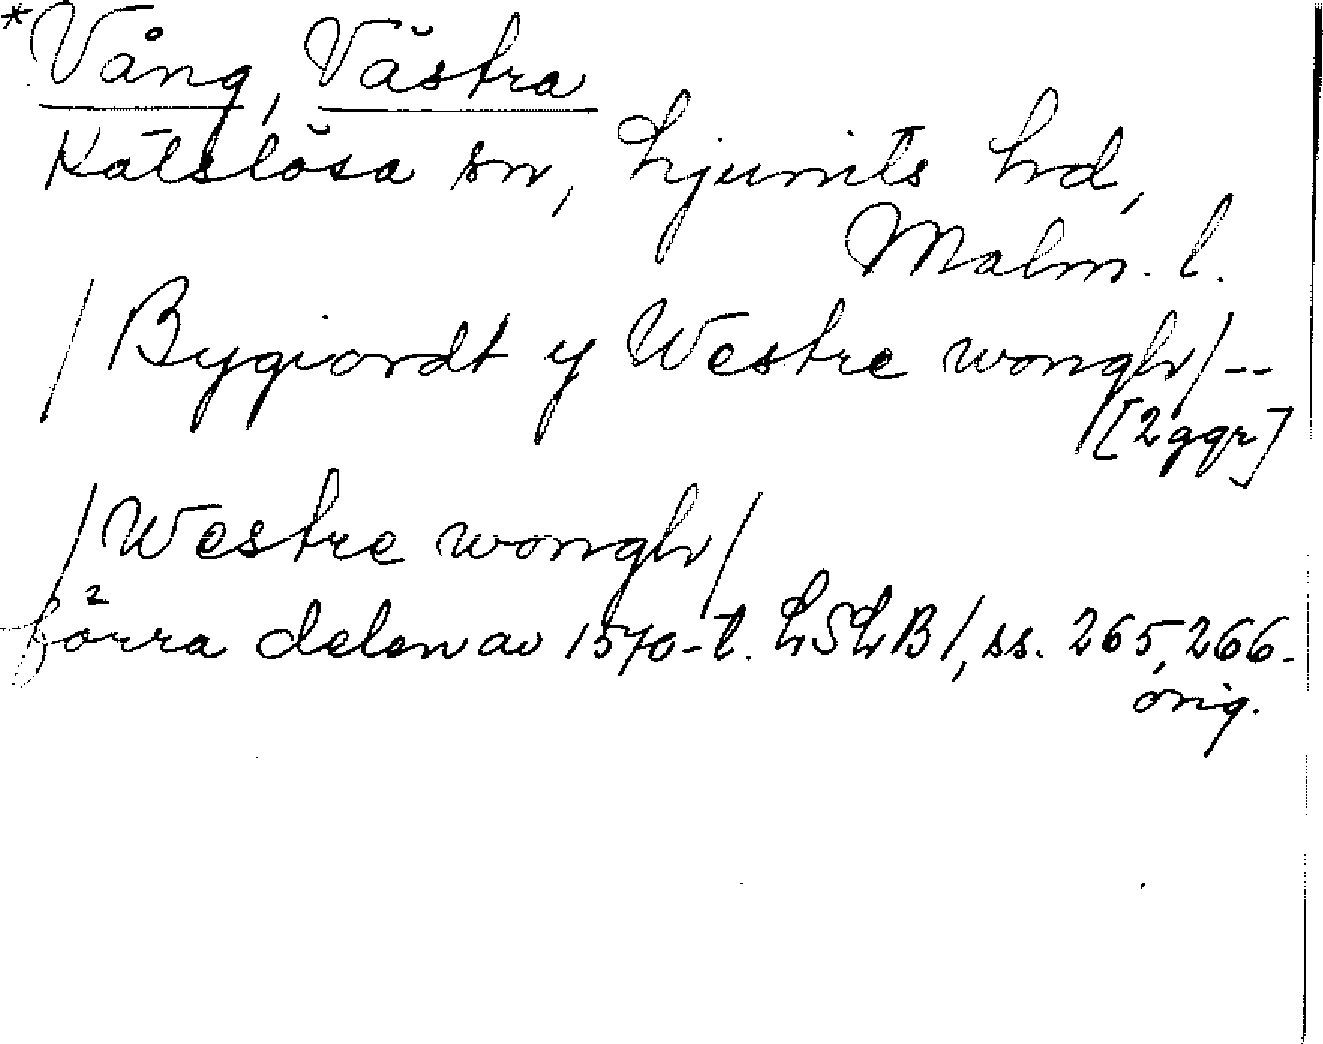 *Vång, Västra
Katslösa sn, Ljunits hd,
Malm. l.
/ Bygiordt y Westre wongh/--
[2 ggr]
/Westre wongh/
förra delen av 1570-t. LSLB1, ss. 265, 266.
orig.